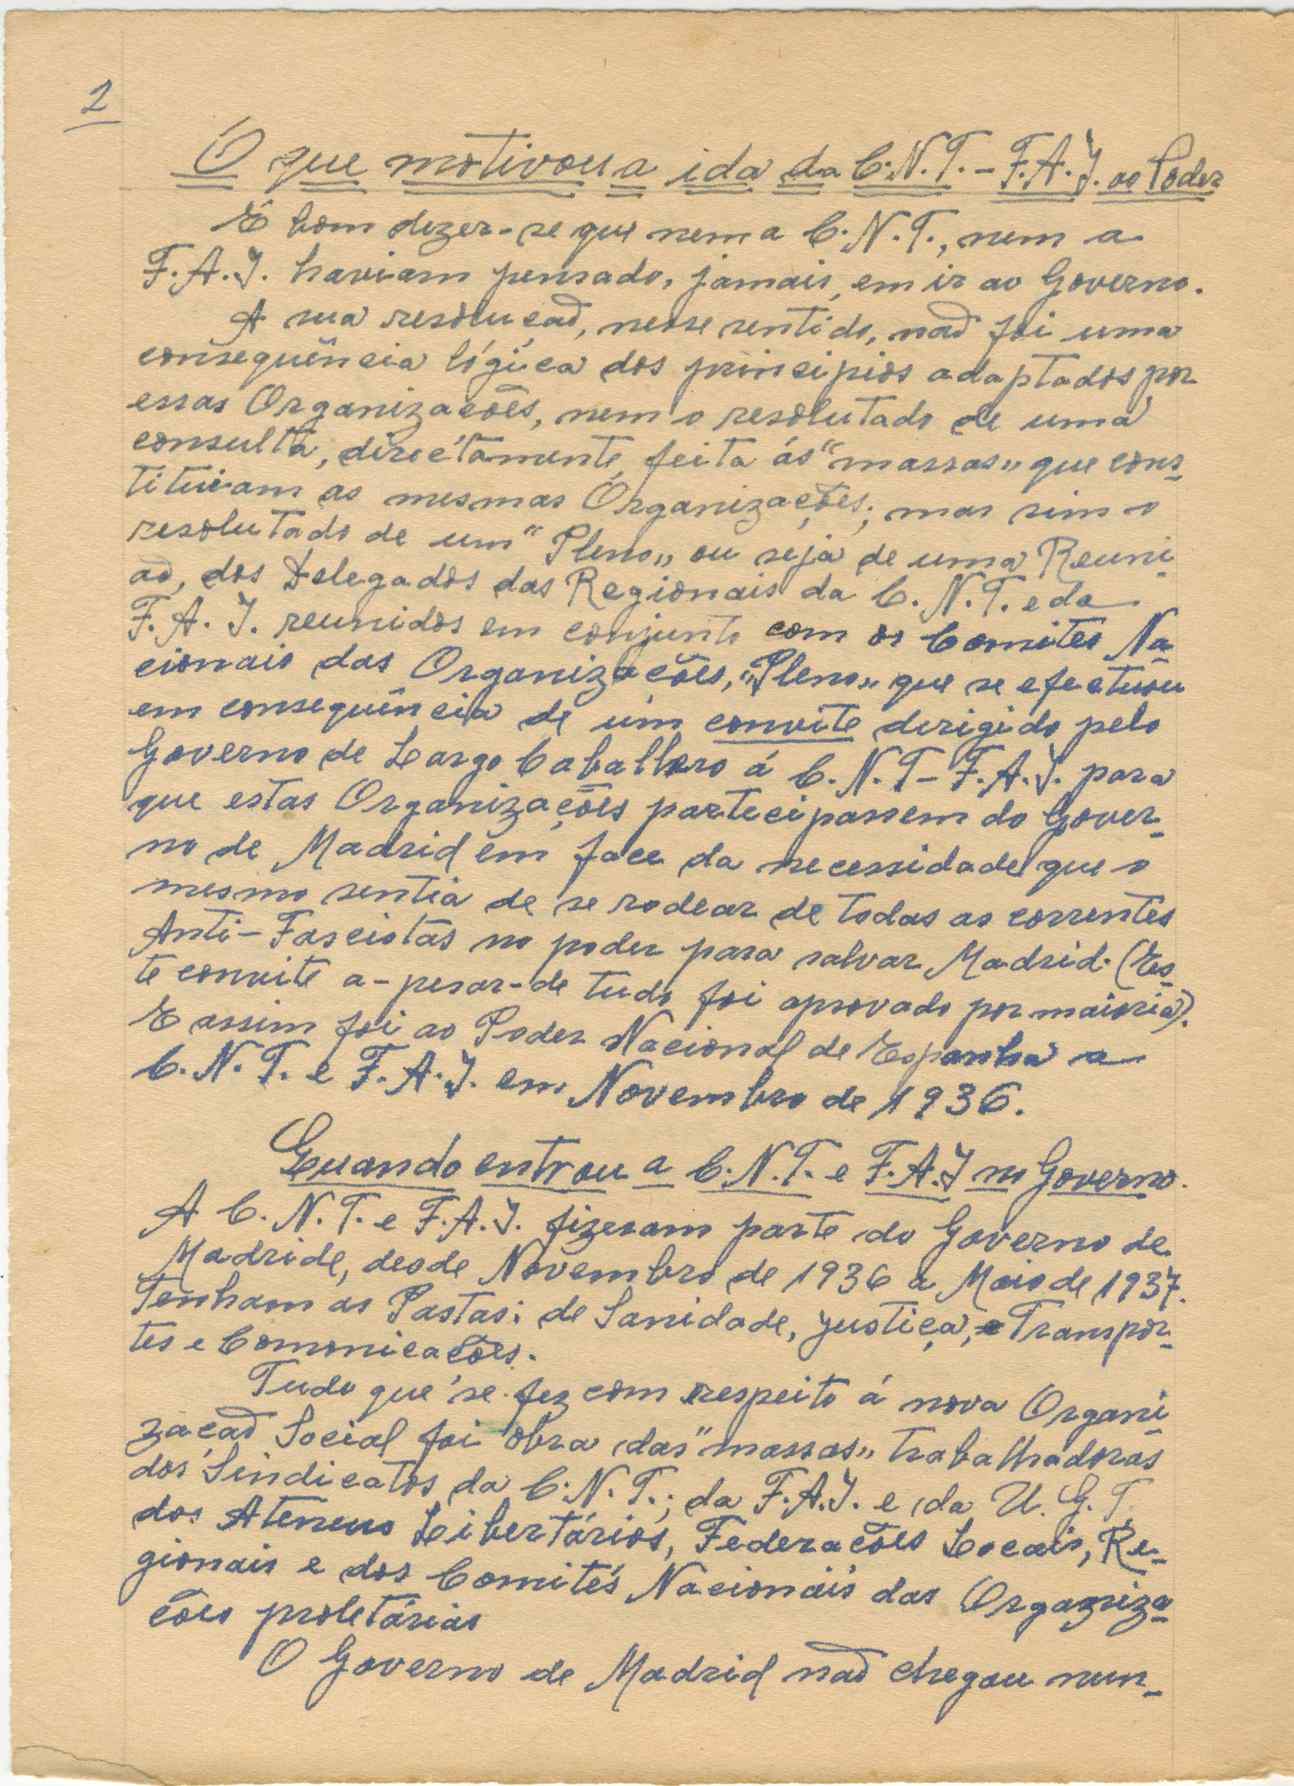 2
O que motivou a ida da C.N.T. - F.A.I. ao Poder
É bom dizer-se que nem a C.N.T., nem a
F.A.I. haviam pensado, jamais, em ir ao Governo.
A sua resolução, nesse sentido, não foi uma
consequência lógica dos principios adaptados por
essas Organizações, nem o resolutado de uma
consulta, diréctamente, feita ás "massas" que cons-
tituiam as mesmas Organizações; mas sim o
resolutado de um "Pleno" ou seja de uma Reuni-
ão, dos Delegados das Regionais da C.N.T. e da
F.A.I. reunidos em conjunto com os Comites Na-
cionais das Organizações, "Pleno" que se efectuou
em consequência de um convite dirigido pelo
Governo de Largo Caballero á C.N.T - F.A.I. para
que estas Organizações partecipassem do Gover-
no de Madrid em face da necessidade que o
mesmo sentia de se rodear de todas as correntes
Anti-Fascistas no poder para salvar Madrid. (Es-
te convite a-pesar-de tudo foi aprovado por maioria).
E assim foi ao Poder Nacional de Espanha a
C.N.T. e F.A.I. em Novembro de 1936.
Quando entrou a C.N.T. e F.A.I no Governo.
A C.N.T. e F.A.I. fizeram parte do Governo de
Madride, desde Novembro de 1936 a Maio de 1937.
Tenham as Pastas: de Sanidade, justiça, e Transpor-
tes e Comonicações.
Tudo que se fez com respeito á nova Organi-
zação Social foi obra das "massas" trabalhadoras
dos Sindicatos da C.N.T.; da F.A.I. e da U.G.T.
dos Ateneus Libertários, Federações Locais, Re-
gionais e dos Comités Nacionais das Organiza-
ções proletárias
O Governo de Madrid não chegou nun-